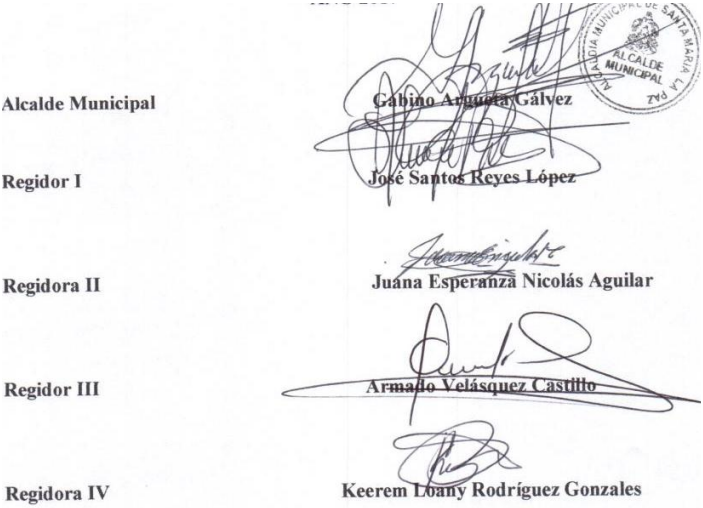 ALCALDIA MUNICIPAL DE SANTA MARIA, LA PAZ
ALCALDE
MUNICIPAL
Alcalde Municipal Gabino Argueta Gálvez
Regidor I José Santos Reyes López
Regidora II Juana Esperanza Nicolás Aguilar
Regidor III Armado Velásquez Castillo
Regidora IV Keerem Loany Rodríguez Gonzales